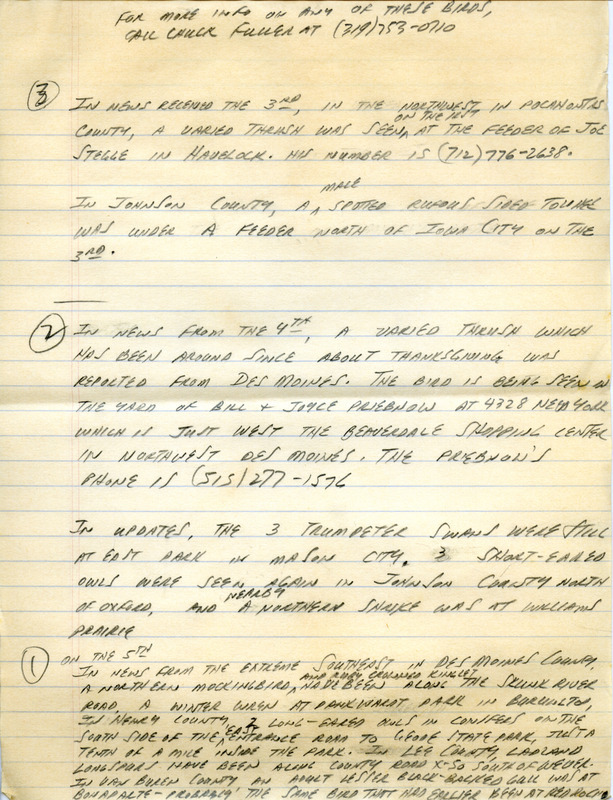 FOR MORE INFO ON ANY OF THESE BIRDS,
CALL CHUCK FULLER AT (319)753-0710
③ IN NEWS RECEIVED THE 3RD, IN THE NORTHWEST IN POCAHONTAS
ON THE 1ST
COUNTY, A VARIED THRUSH WAS SEEN ^ AT THE FEEDER OF JOE
STEGGE IN HAVELOCK. HIS NUMBER IS (712)776-2638.
MALE
IN JOHNSON COUNTY, A ^ SPOTTED RUFOUS SIDED TOWHEE
WAS UNDER A FEEDER NORTH OF IOWA CITY ON THE
3RD.
② IN NEWS FROM THE 4TH, A VARIED THRUSH WHICH
HAS BEEN AROUND SINCE ABOUT THANKSGIVING WAS
REPORTED FROM DES MOINES. THE BIRD IS BEING SEEN IN
THE YARD OF BILL + JOYCE PRIEBNOW AT 4328 NEW YORK
WHICH IS JUST WEST THE BEAVERDALE SHOPPING CENTER
IN NORTHWEST DES MOINES. THE PRIEBNOW'S
PHONE IS (515)277-1576
IN UPDATES, THE 3 TRUMPETER SWANS WERE STILL
AT EAST PARK IN MASON CITY. 3 SHORT-EARED
OWLS WERE SEEN AGAIN IN JOHNSON COUNTY NORTH
NEARBY
OF OXFORD, AND A NORTHERN SHRIKE WAS AT WILLIAMS
PRAIRIE
① ON THE 5TH
IN NEWS FROM THE EXTREME SOUTHEAST IN DES MOINES COUNTY,
AND RUBY CROWNED KINGLET
A NORTHERN MOCKINGBIRD, HAVE BEEN ALONG THE SKUNK RIVER
ROAD, A WINTER WREN AT DANKWARDT PARK IN BURLINGTON,
IN HENRY COUNTY, 2 LONG-EARED OWLS IN CONIFERS ON THE
EAST
SOUTH SIDE OF THE ^ ENTRANCE ROAD TO GEODE STATE PARK, JUST A
TENTH OF A MILE INSIDE THE PARK. IN LEE COUNTY, LAPLAND
LONGSPURS HAVE BEEN ALONG COUNTY ROAD X-50 SOUTH OF WEVER.
IN VAN BUREN COUNTY AN ADULT LESSER BLACK-BACKED GULL WAS AT
BONAPARTE - PROBABLY THE SAME BIRD THAT HAD EARLIER BEEN AT RED ROCK.